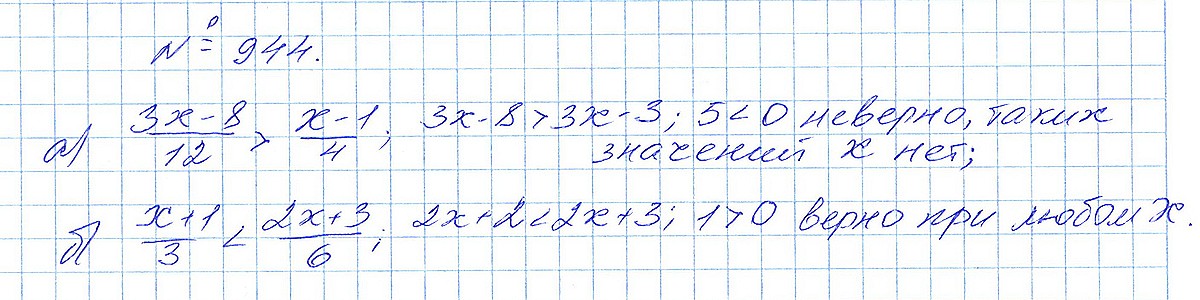 № 944.
а) (3x-8)/12 > (x-1)/4; 3x-8>3x-3; 5<0 неверно, таких
значений x нет;
б) (x+1)/3 < (2x+3)/6; 2x+2<2x+3; 1>0 верно при любом x.